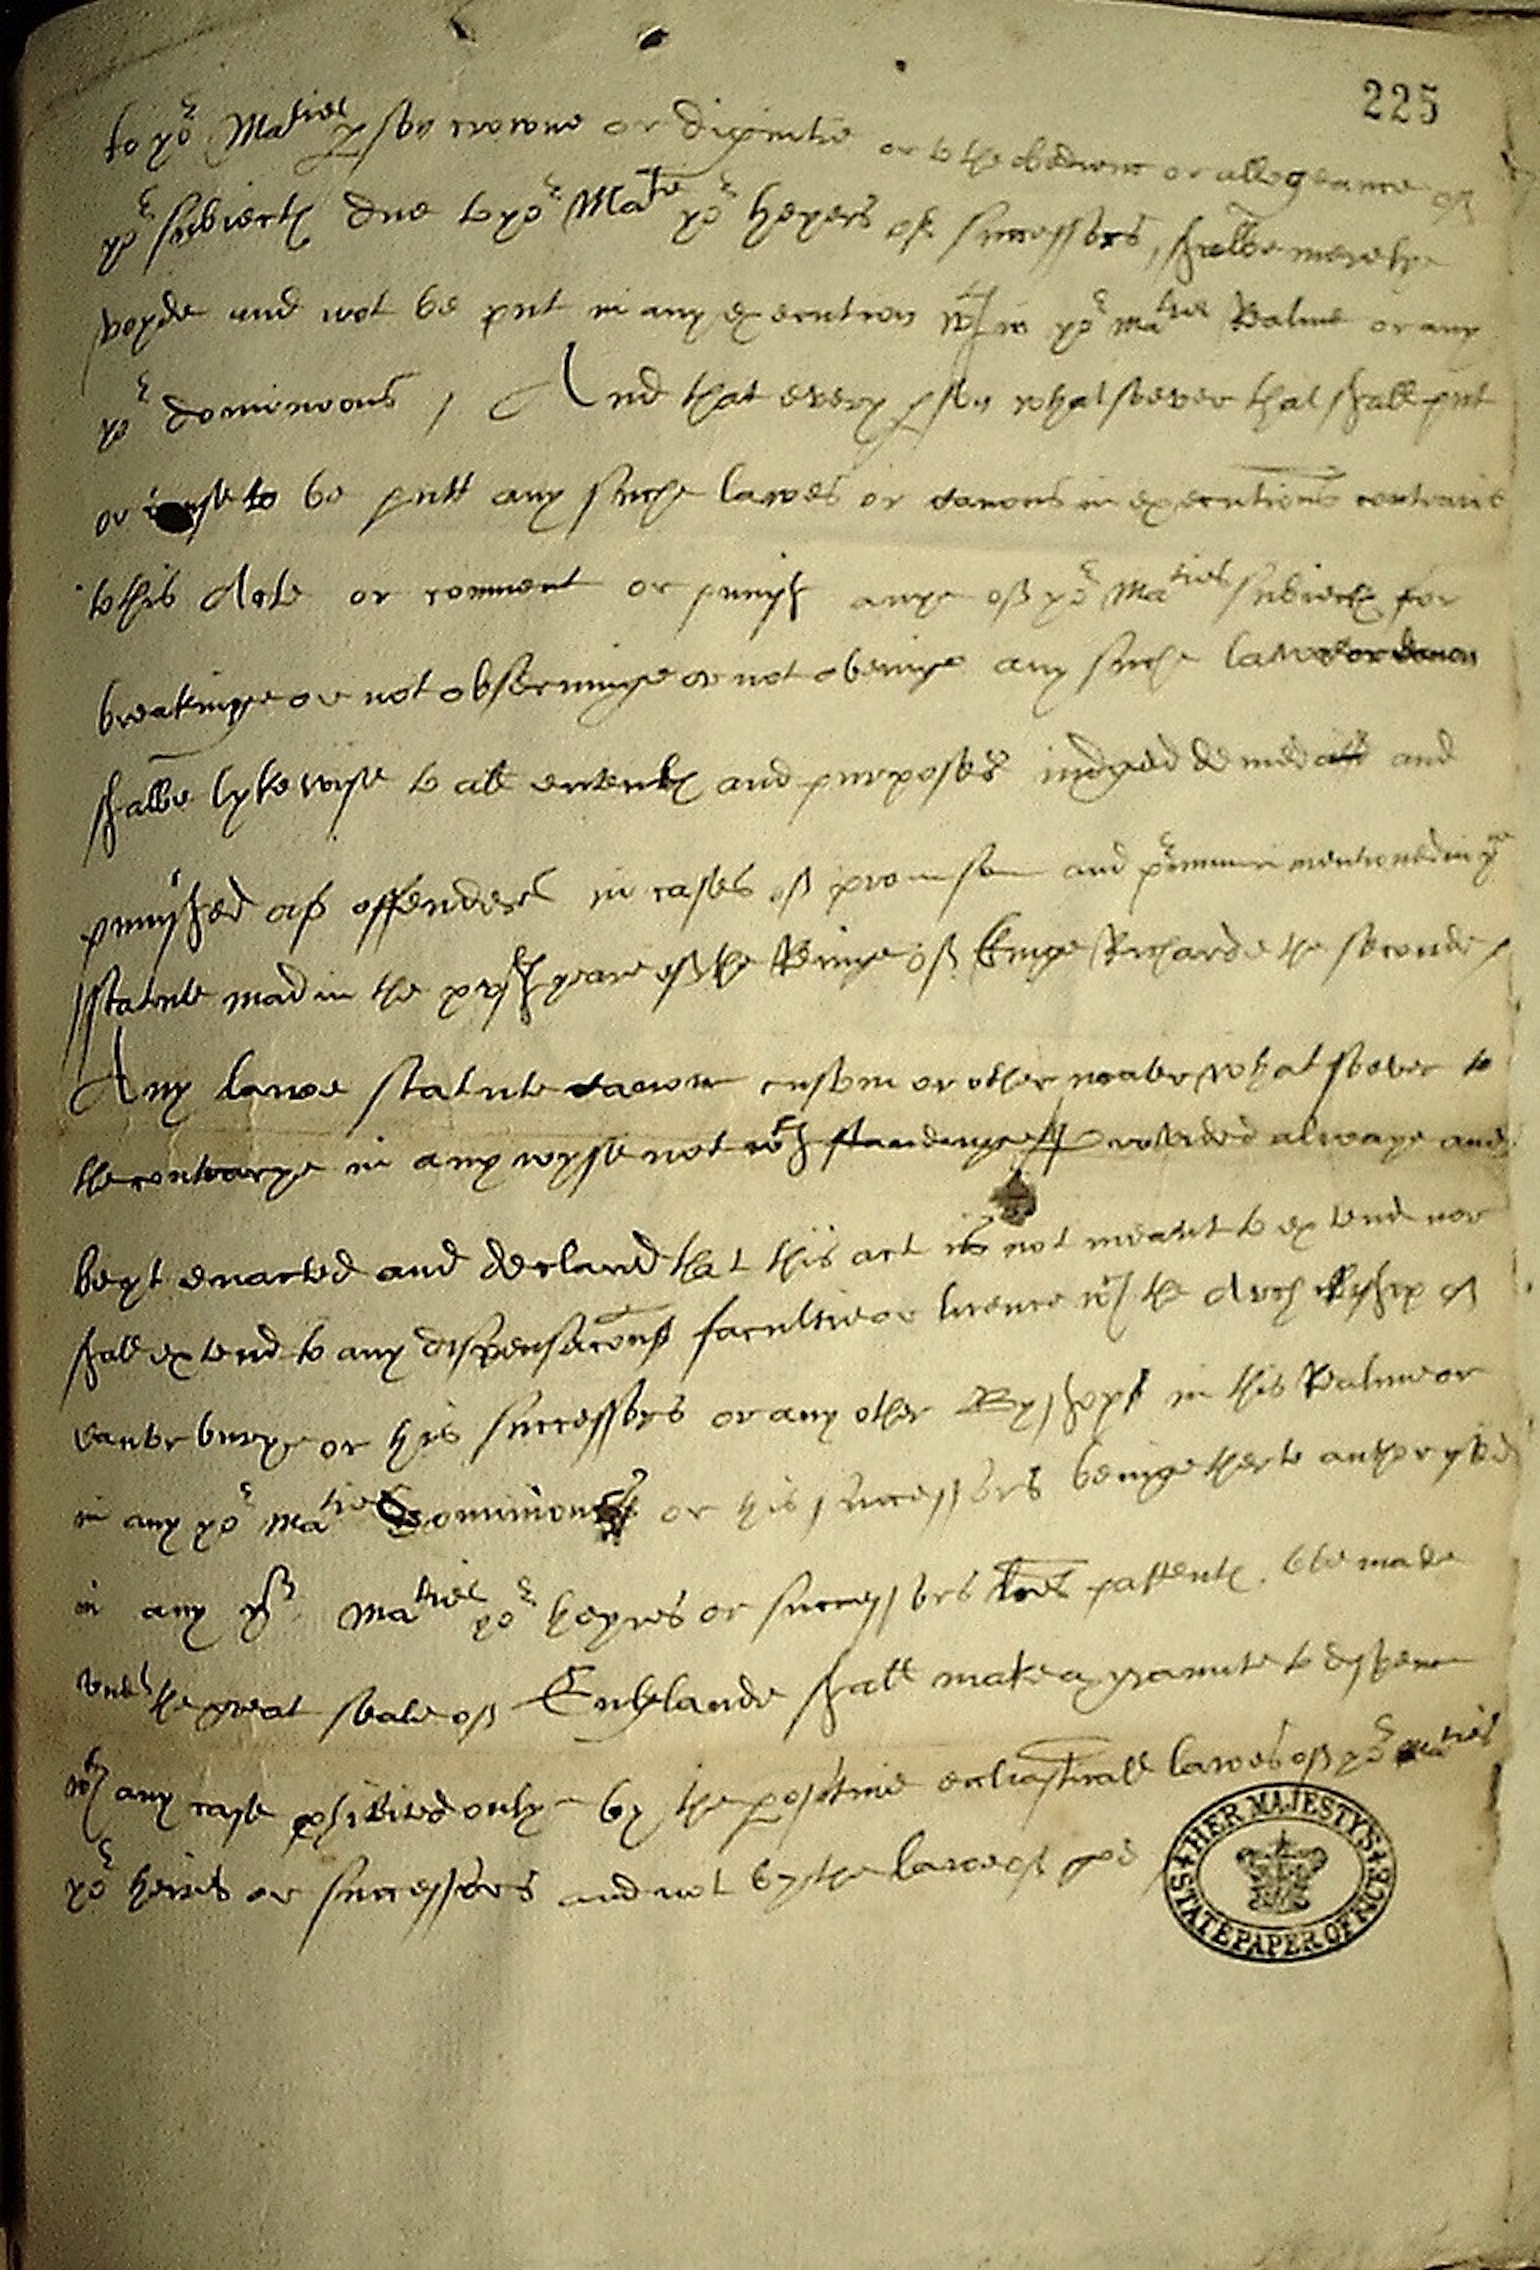 225
to yor Maties pson crowne or dignitie or to the obedience or allegeance of
yor subiectes due to yor Matie yor heyers or successors, shalbe merelye
voyde and not be put in any execution wthin yor maties Realme or any
yor dominions, And that every pson whatsoever that shall put
or cause to be putt any suche lawes or canons in executione contrarie
to this Acte or convent or punish anye of yor Maties subiectes for
breakinge or not observinge or not obeinge any suche lawe or canon
shalbe lykewyse to all ententes and purposes iudged demed and
punished as offenders in cases of provision and premunire mentioned in ye
statute mad in the xvjth yeare of the Reinge of Kinge Richarde the seconde
Any lawe statute canon custom or other mater whatsoever to
the contrarye in any wyse not wthstandinge Provided alwaye and
be yt enacted and declared that this act is not meant to extend nor
shall extend to any dispensacions facultie or licence wch the Archbyshop of
Canterburye or his successors or any other Byshopp in this Realme or
in any yor maties Dominions or his successors beinge therto authorysed
in any yor Maties yor heyres or successors lres pattentes to be made
under the great seale of Englande shall make or graunte to dispence
wth any case phibited onlye by the positive ecclīasticall lawes of yor maties
yor heires or successors and not by the lawe of god
HER MAJESTY'S
STATE PAPER OFFICE